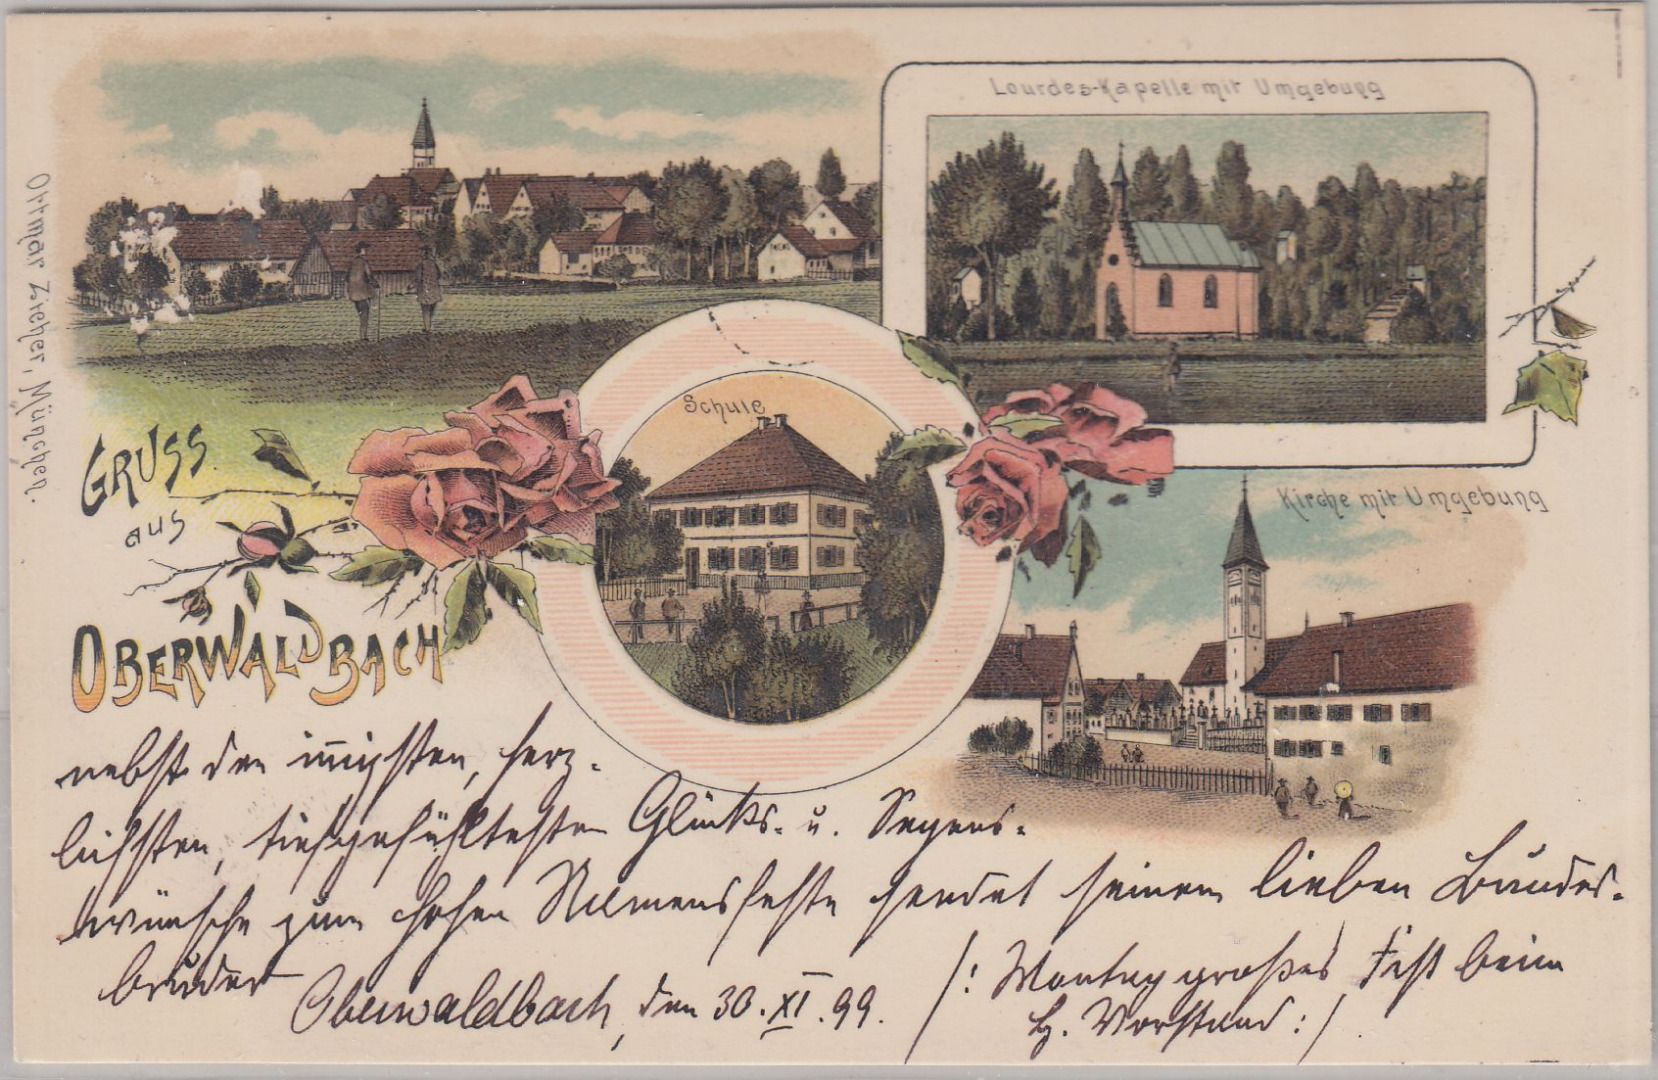 Lourdes-Kapelle mit Umgebung
Ottmar Zieher, München.
Schule
GRUSS
aus
OBERWALDBACH
Kirche mit Umgebung
nebst den innigsten, herz-
lichsten, tiefgefühltesten Glücks- u. Segens-
wünsche zum hohen Namensfeste sendet seinem lieben Bundes-
bruder
Oberwaldbach, den 30. XI. 99.
/: Montag großes Fest beim
H. Vorstand :/